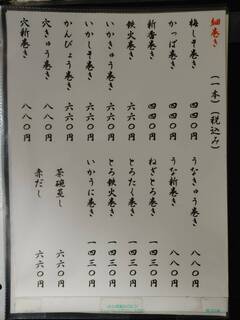 細巻き (一本) (税込み)
梅しそ巻き 四四〇円
かっぱ巻き 四四〇円
新香巻き 四四〇円
鉄火巻き 六六〇円
いかきゅう巻き 六六〇円
いかしそ巻き 六六〇円
かんぴょう巻き 六六〇円
穴きゅう巻き 八八〇円
穴新巻き 八八〇円
うなきゅう巻き 八八〇円
うな新巻き 八八〇円
ねぎとろ巻き 一四三〇円
とろたく巻き 一四三〇円
とろ鉄火巻き 一四三〇円
いかうに巻き 一四三〇円
茶碗蒸し 六六〇円
赤だし 六六〇円